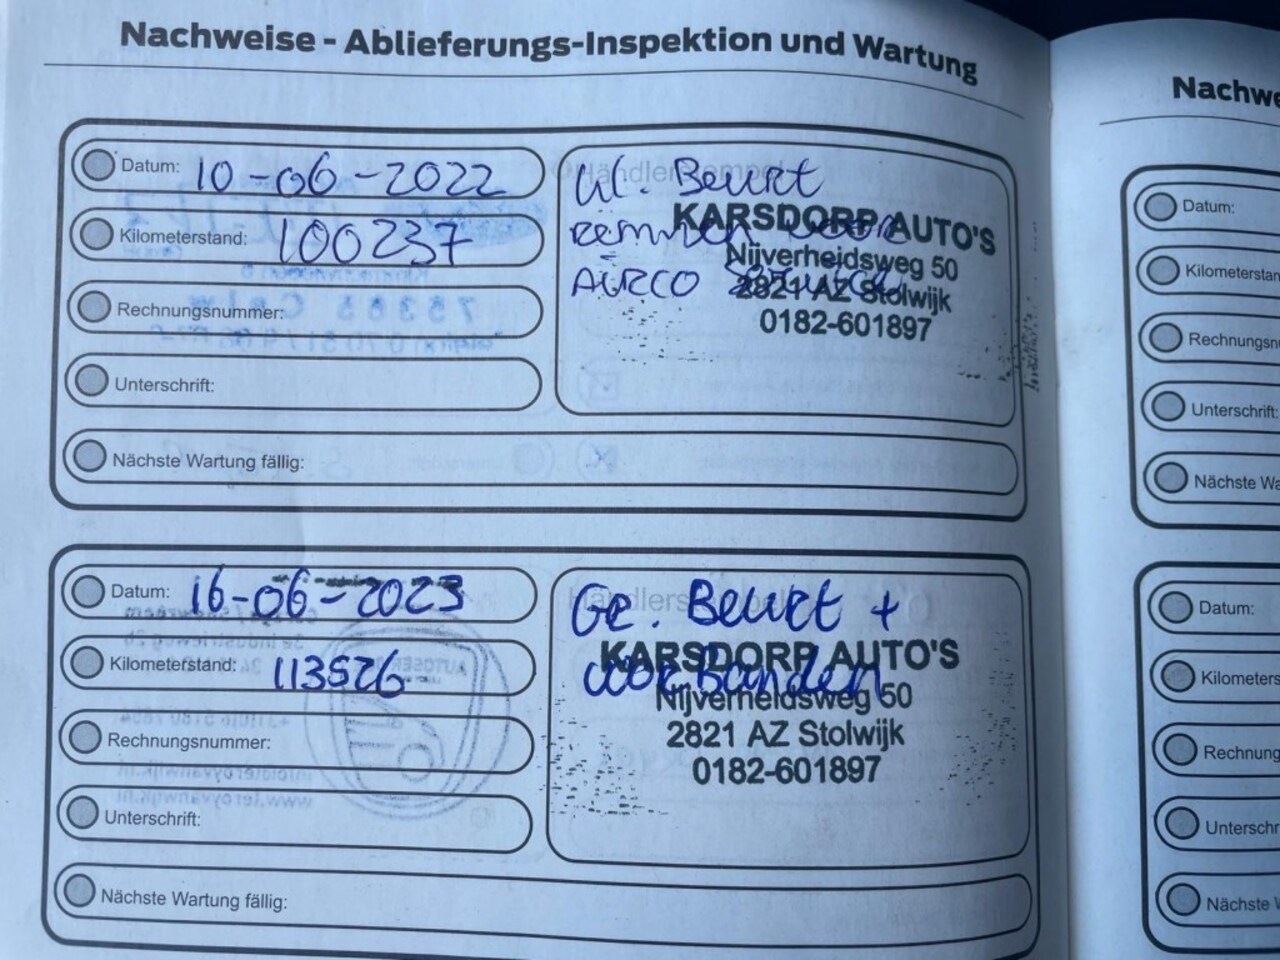 Nachweise - Ablieferungs-Inspektion und Wartung
Datum: 10-06-2022
Kilometerstand: 100237
Rechnungsnummer:
Unterschrift:
Nächste Wartung fällig:
Händlerstempel
Gr. Beurt
remmen voor
AIRCO
KARSDORP AUTO'S
Nijverheidsweg 50
2821 AZ Stolwijk
0182-601897
Datum: 16-06-2023
Kilometerstand: 113526
Rechnungsnummer:
Unterschrift:
Nächste Wartung fällig:
Händlerstempel
Gr. Beurt +
voor Banden
KARSDORP AUTO'S
Nijverheidsweg 50
2821 AZ Stolwijk
0182-601897
Nachwe
Datum:
Kilometerstan
Rechnungsn
Unterschrift:
Nächste Wa
Datum:
Kilometers
Rechnung
Unterschr
Nächste